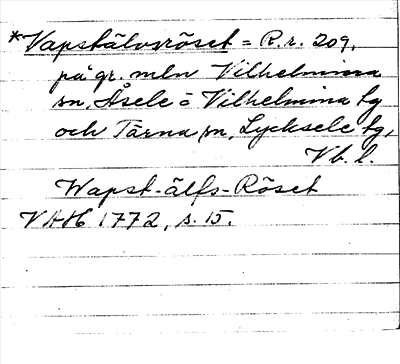 *Vapstälvsröset = R.r. 209,
på gr. mln Vilhelmina
sn, Åsele o Vilhelmina lg
och Tärna sn, Lycksele lg,
Vb. l.
Wapst-älfs-Röset
VAH 1772, s. 15.